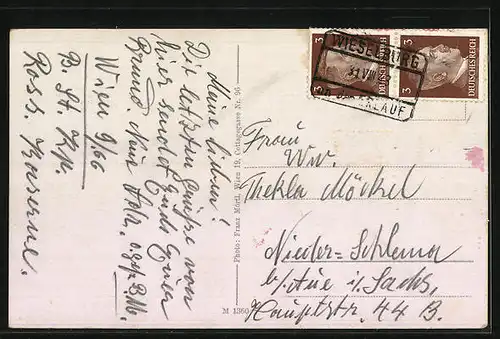 Meine Lieben!
Die letzten Grüße von
hier sendet Euch Euer
Bruno
Wien 9/66
B. St. Kp.
Ross. Kaserne.
Photo: Franz Mörtl, Wien 19, Cottagegasse Nr. 96
M 1360
3
DEUTSCHES REICH
3
DEUTSCHES REICH
WIESELBURG
Frau
Ww.
Thekla Möckel
Nieder-Schlema
b/Aue i/Sachs,
Hauptstr. 44 B.